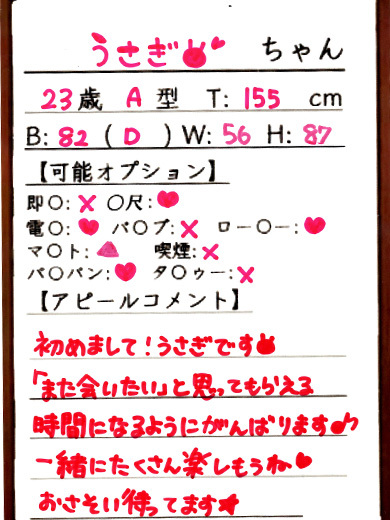 うさぎ ちゃん
23歳 A型 T: 155 cm
B: 82 ( D ) W: 56 H: 87
【可能オプション】
即〇: × 〇尺: ♥
電〇: ♥ バ〇ブ: × ロー〇ー: ♥
マ〇ト: ▲ 喫煙: ×
パ〇パン: ♥ タ〇ゥー: ×
【アピールコメント】
初めまして!うさぎです
「また会いたい」と思ってもらえる
時間になるようにがんばります♪
一緒にたくさん楽しもうね♥
おさそい待ってます★